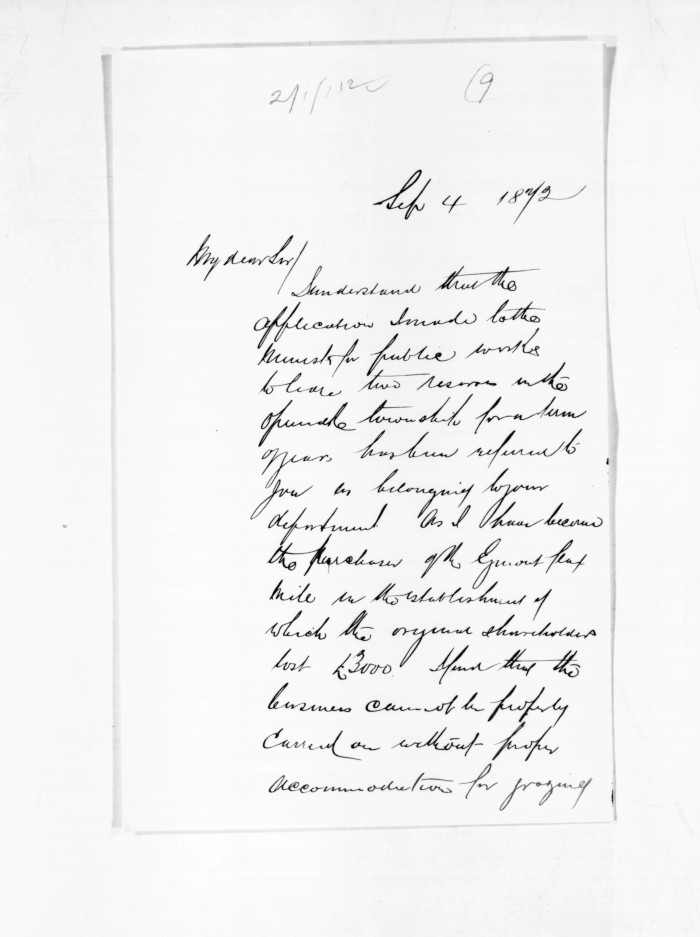 (9
Sep 4 1872
My dear Sir/
I understand that the
application I made to the
Minister for public works
to lease two reserves in the
Opunake township for a term
of years has been referred to
you as belonging to your
department As I have become
the purchaser of the Egmont flax
Mill in the establishment of
which the original shareholders
lost £3000 I find that the
business cannot be properly
carried on without proper
accommodation for grazing